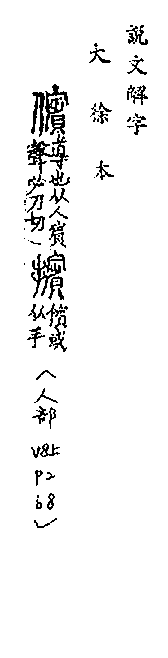 說文解字
大徐本
儐導也从人賓聲必刃切一擯儐或从手（人部 V8上 P2 b8）